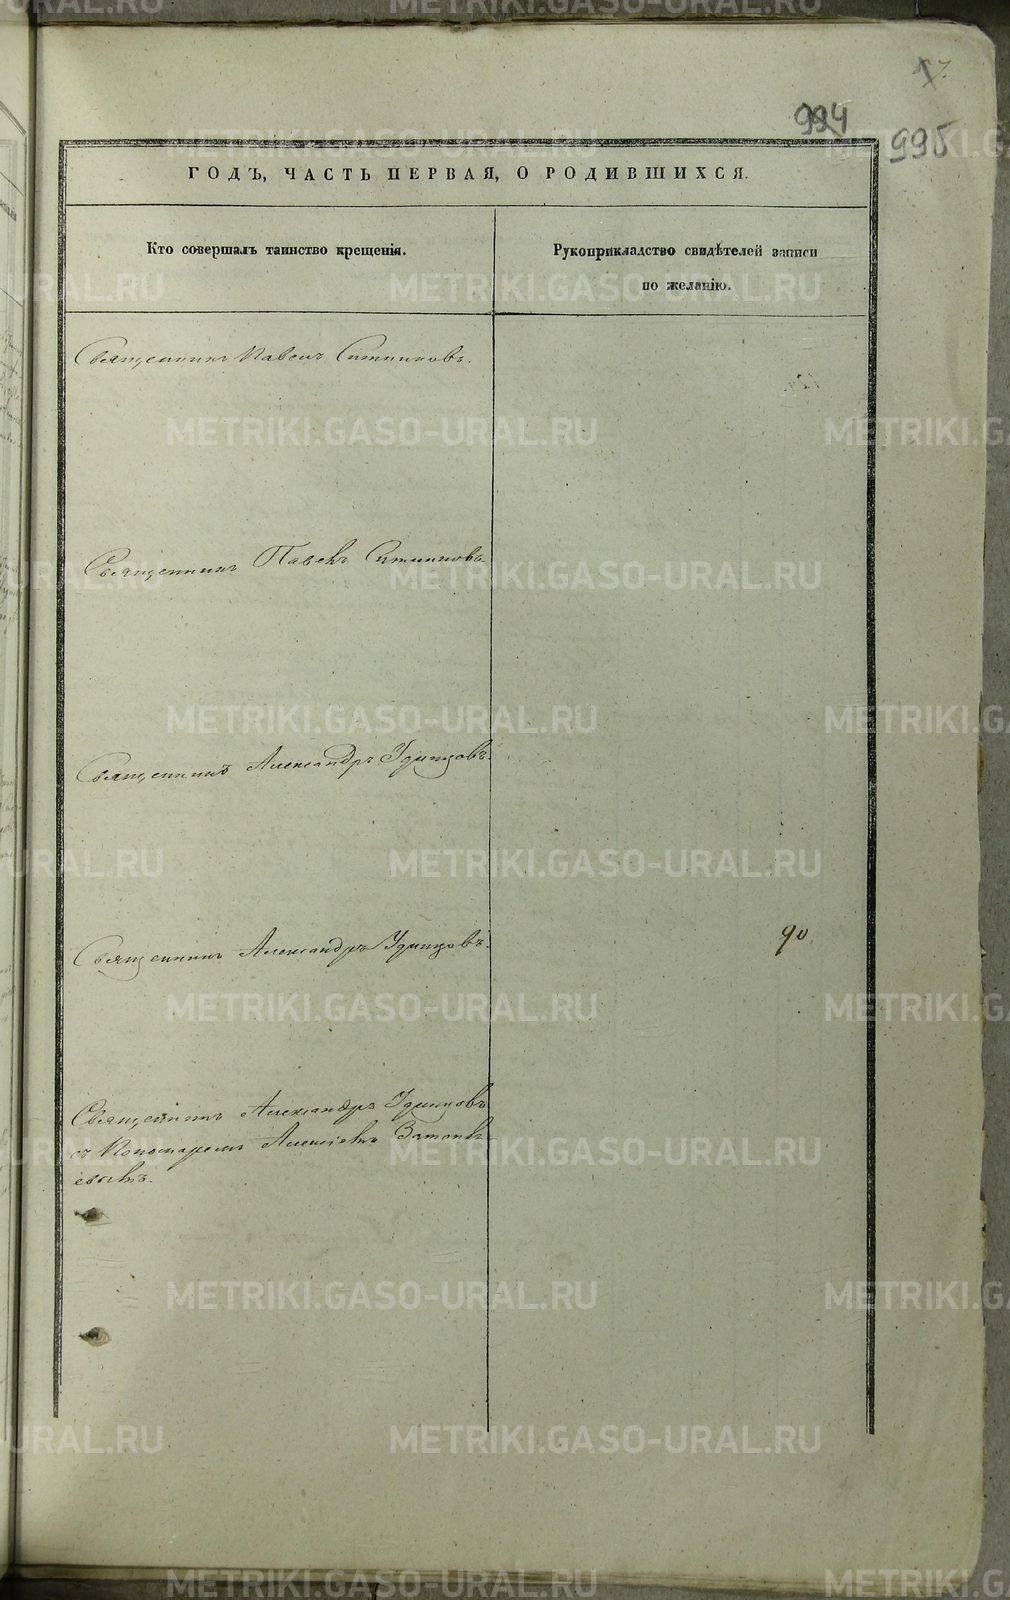 994
995
ГОДЪ, ЧАСТЬ ПЕРВАЯ, О РОДИВШИХСЯ.
Кто совершалъ таинство крещенія.
Рукоприкладство свидѣтелей записи
по желанію.
Священникъ Павелъ Ситниковъ.
Священникъ Павелъ Ситниковъ
Священникъ Александръ Удинцовъ.
Священникъ Александръ Удинцовъ.
90
Священникъ Александръ Удинцовъ
съ Пономаремъ Алексѣемъ
METRIKI.GASO-URAL.RU